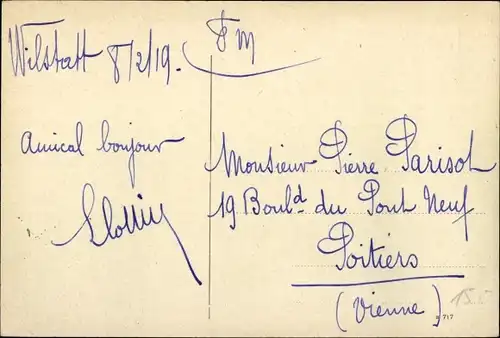 Wilstatt 8/2/19.
F M
Amical bonjour
Monsieur Pierre Parisot
19 Boul.d du Pont Neuf
Poitiers
(Vienne)
717